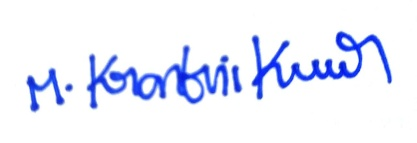 M. Kranthi Kumar